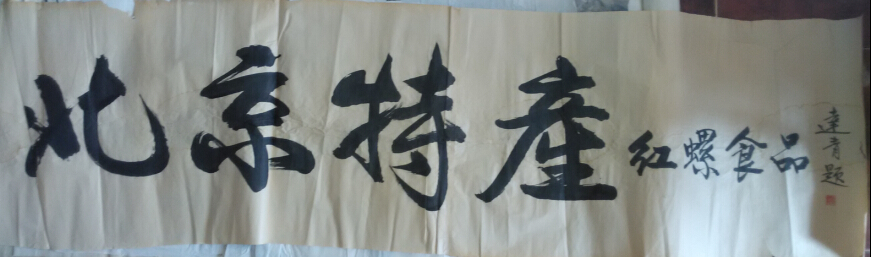 北京特產
红螺食品
達青题